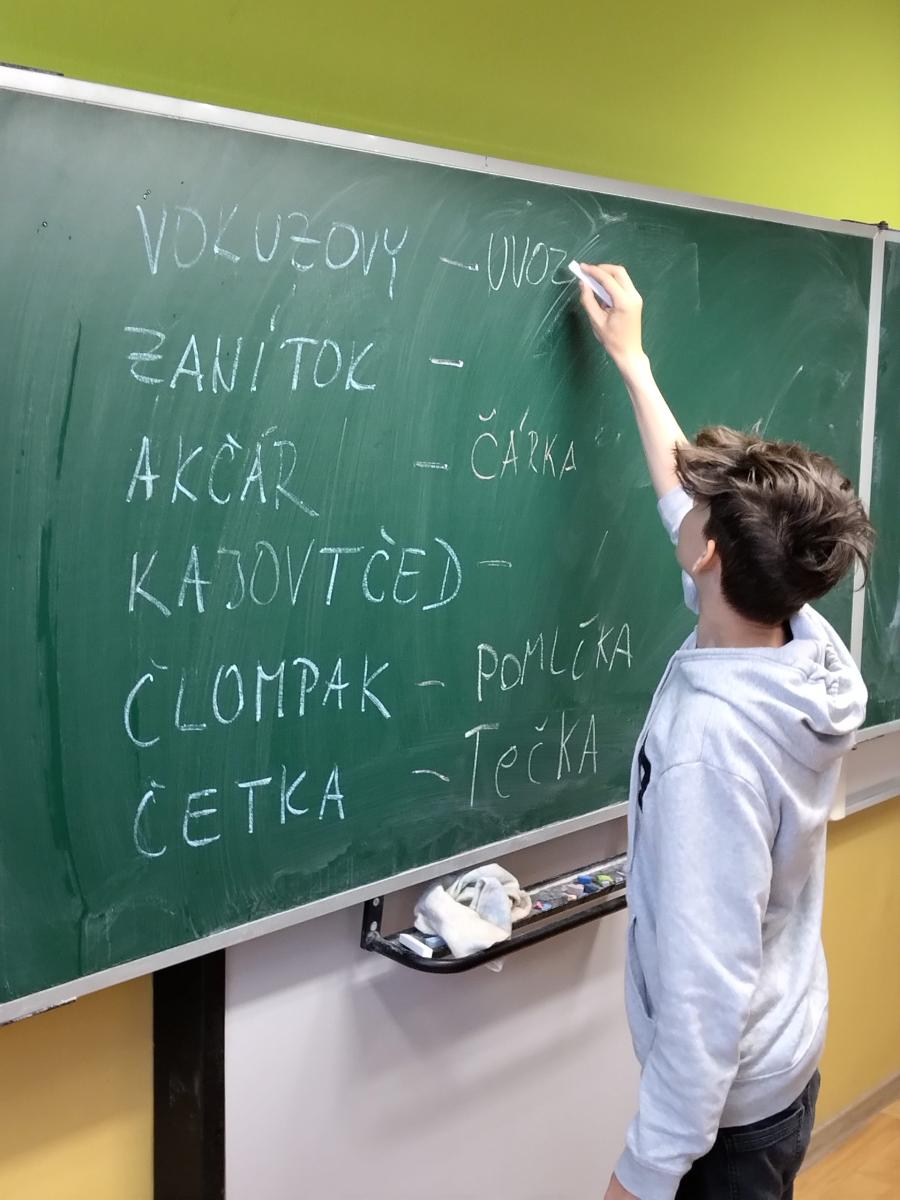 VOKUZOVY - UVOZ
ZANÍTOK -
AKČÁR - ČÁRKA
KAJOVTČED -
ČLOMPAK - POMLČKA
ČETKA - TečKA